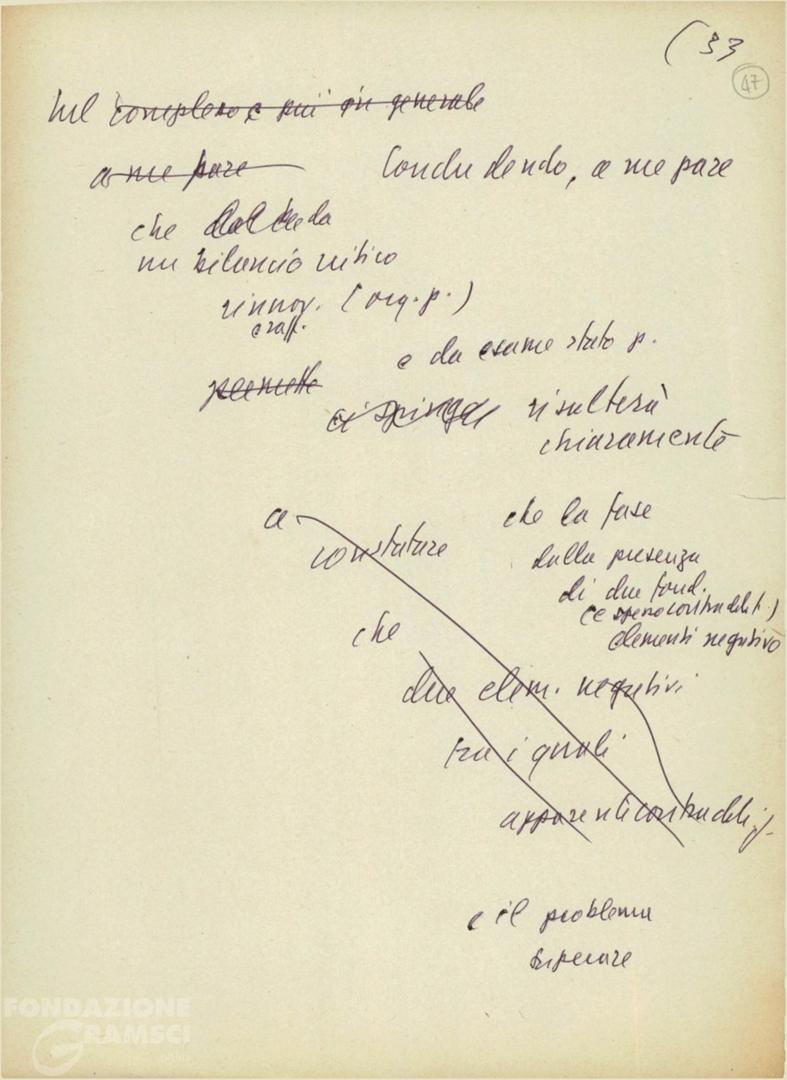 (33
47
Nel complesso e più in generale
a me pare
Concludendo, a me pare
che
un bilancio critico
rinnov. (org. p.)
e raff.
e da esame stato p.
permette
ci spinge
risulterà
chiaramente
a
constatare
che
che la fase
dalla presenza
di due fond.
(e contraddit.)
elementi negativi
due elem. negativi
tra i quali
apparenti contraddiz.
e il problema
superare
FONDAZIONE
GRAMSCI